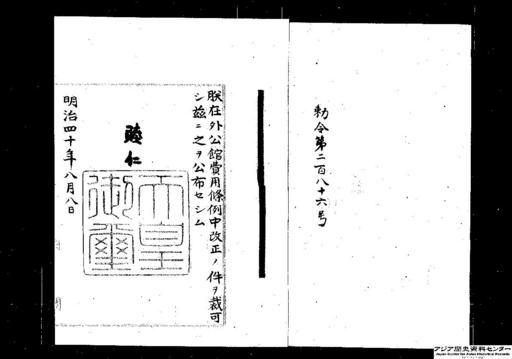 勅令第二百八十六号
朕在外公館費用條例中改正ノ件ヲ裁可
シ茲ニ之ヲ公布セシム
睦仁
天皇
御璽
明治四十年八月八日
アジア歴史資料センター
Japan Center for Asian Historical Records